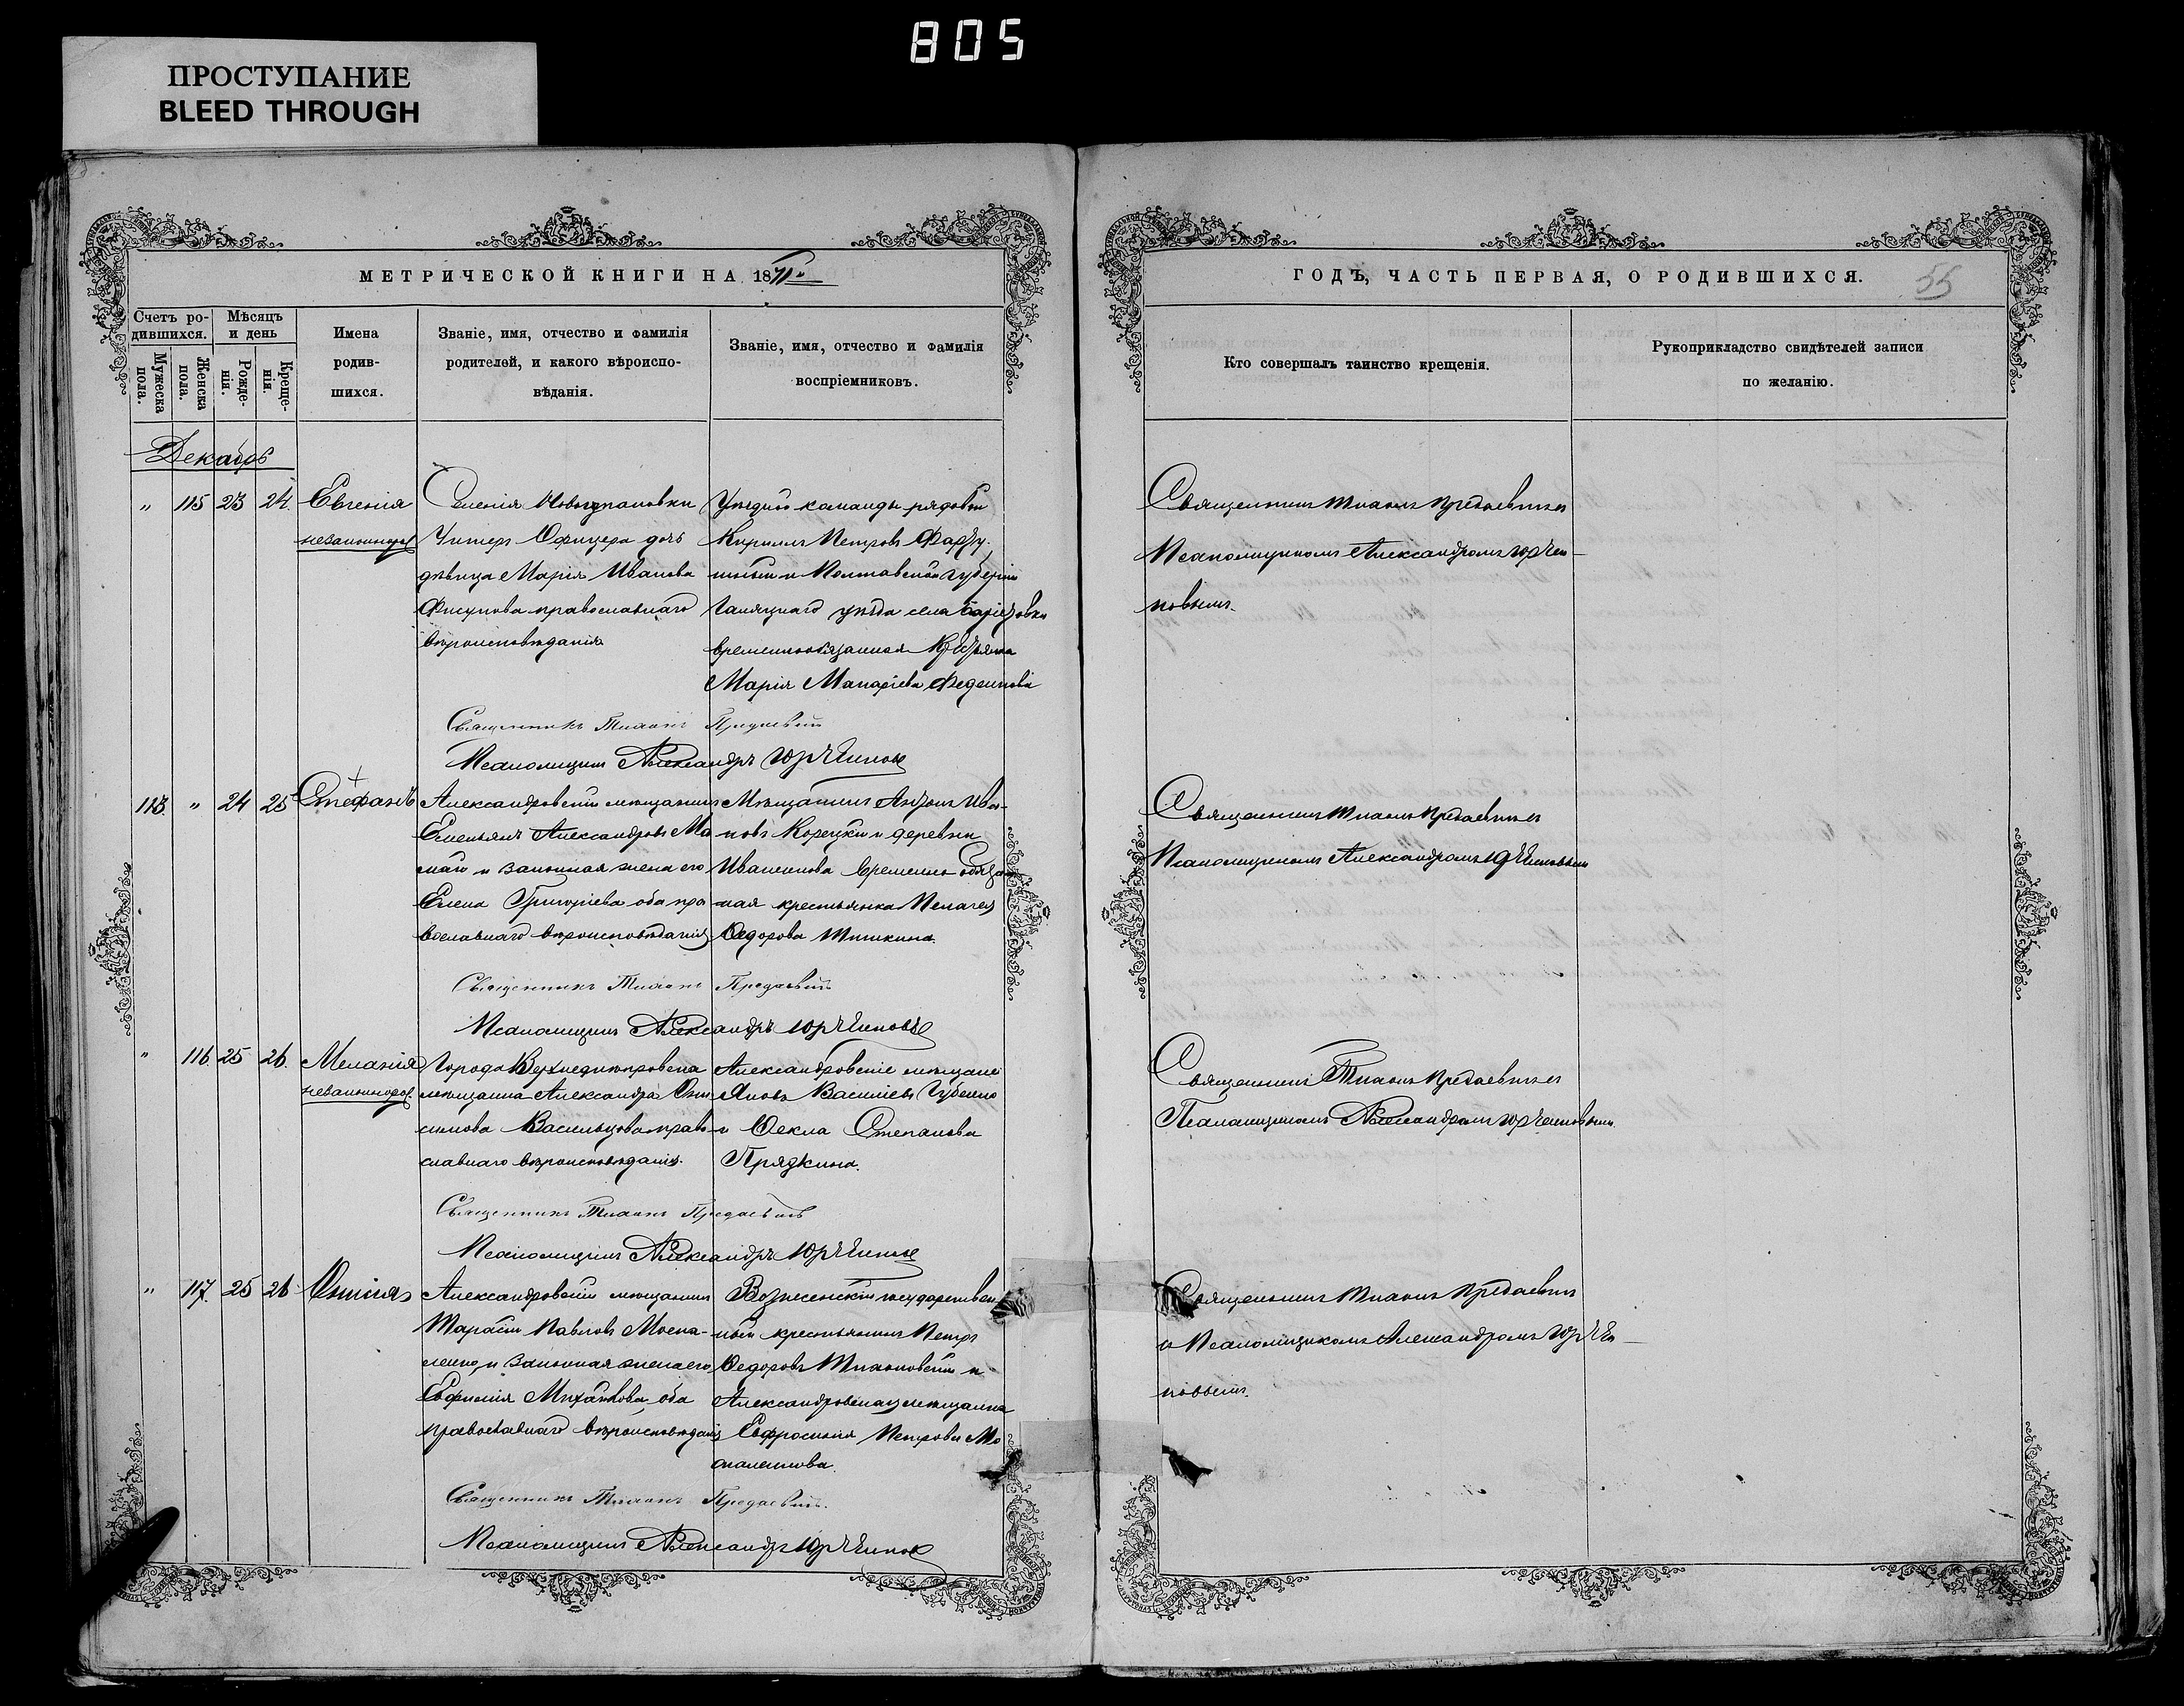 805
ПРОСТУПАНИЕ
BLEED THROUGH
МЕТРИЧЕСКОЙ КНИГИ НА 1871
ГОДЪ, ЧАСТЬ ПЕРВАЯ, О РОДИВШИХСЯ.
55
Счетъ ро-
дившихся.
Мужеска
пола.
Женска
пола.
Мѣсяцъ
и день
Рожде-
нія.
Креще-
нія.
Имена
родив-
шихся.
Званіе, имя, отчество и фамилія
родителей, и какого вѣроиспо-
вѣданія.
Званіе, имя, отчество и фамилія
воспріемниковъ.
Кто совершалъ таинство крещенія.
Рукоприкладство свидѣтелей записи
по желанію.
Декабрь
" 115 23 24.
Евгенія
незаконнорож
Селенія
Унтеръ Офицера дочь
дѣвица Марія Иванова
Фисунова православнаго
вѣроисповѣданія
Уѣздной команды рядовой
Кириллъ Петровъ
и Полтавской Губерніи
уѣзда села
временнообязанная
Марія Макаріева
Священникъ Тихонъ
Псаломщикъ Александръ Юрченковъ
Священникъ Тихонъ
Псаломщикомъ Александромъ Юрчен-
ковымъ.
113. " 24 25
Стефанъ
Александровскій мѣщанинъ
Емельянъ Александровъ Ма
и законная жена его
Елена Григоріева оба пра
вославнаго вѣроисповѣданія
Мѣщанинъ Антонъ Ива-
новъ Корецкій и деревни
Иваненкова временно обязан
ная крестьянка Пелагея
Ѳедорова Шишкина.
Священникъ Тихонъ
Псаломщикъ Александръ Юрченковъ
Священникъ Тихонъ
Псаломщикомъ Александромъ Юрченковымъ
" 116. 25 26.
Меланія
незаконнорож.
Города Верхнеднѣпровска
мѣщанка Александра Они
симова Васильцова право
славнаго вѣроисповѣданія.
Александровскіе мѣщане
Яковъ Василіевъ Губенко
и Ѳекла Степанова
Прядкина.
Священникъ Тихонъ
Псаломщикъ Александръ Юрченковъ
Священникъ Тихонъ
Псаломщикомъ Александромъ Юрченковымъ
" 117. 25 26
Александровскій мѣщанинъ
Тарасій Павловъ Моска-
ленко, и законная жена его
Евфимія Михайлова, оба
православнаго вѣроисповѣданія
Вознесенскій государствен
ный крестьянинъ Петръ
Ѳедоровъ Тихоновскій и
Александровская мѣщанка
Евфросинія Петрова Мо
скаленкова.
Священникъ Тихонъ
Псаломщикъ Александръ Юрченковъ
Священникъ Тихонъ
и Псаломщикомъ Александромъ Юрчен-
ковымъ.